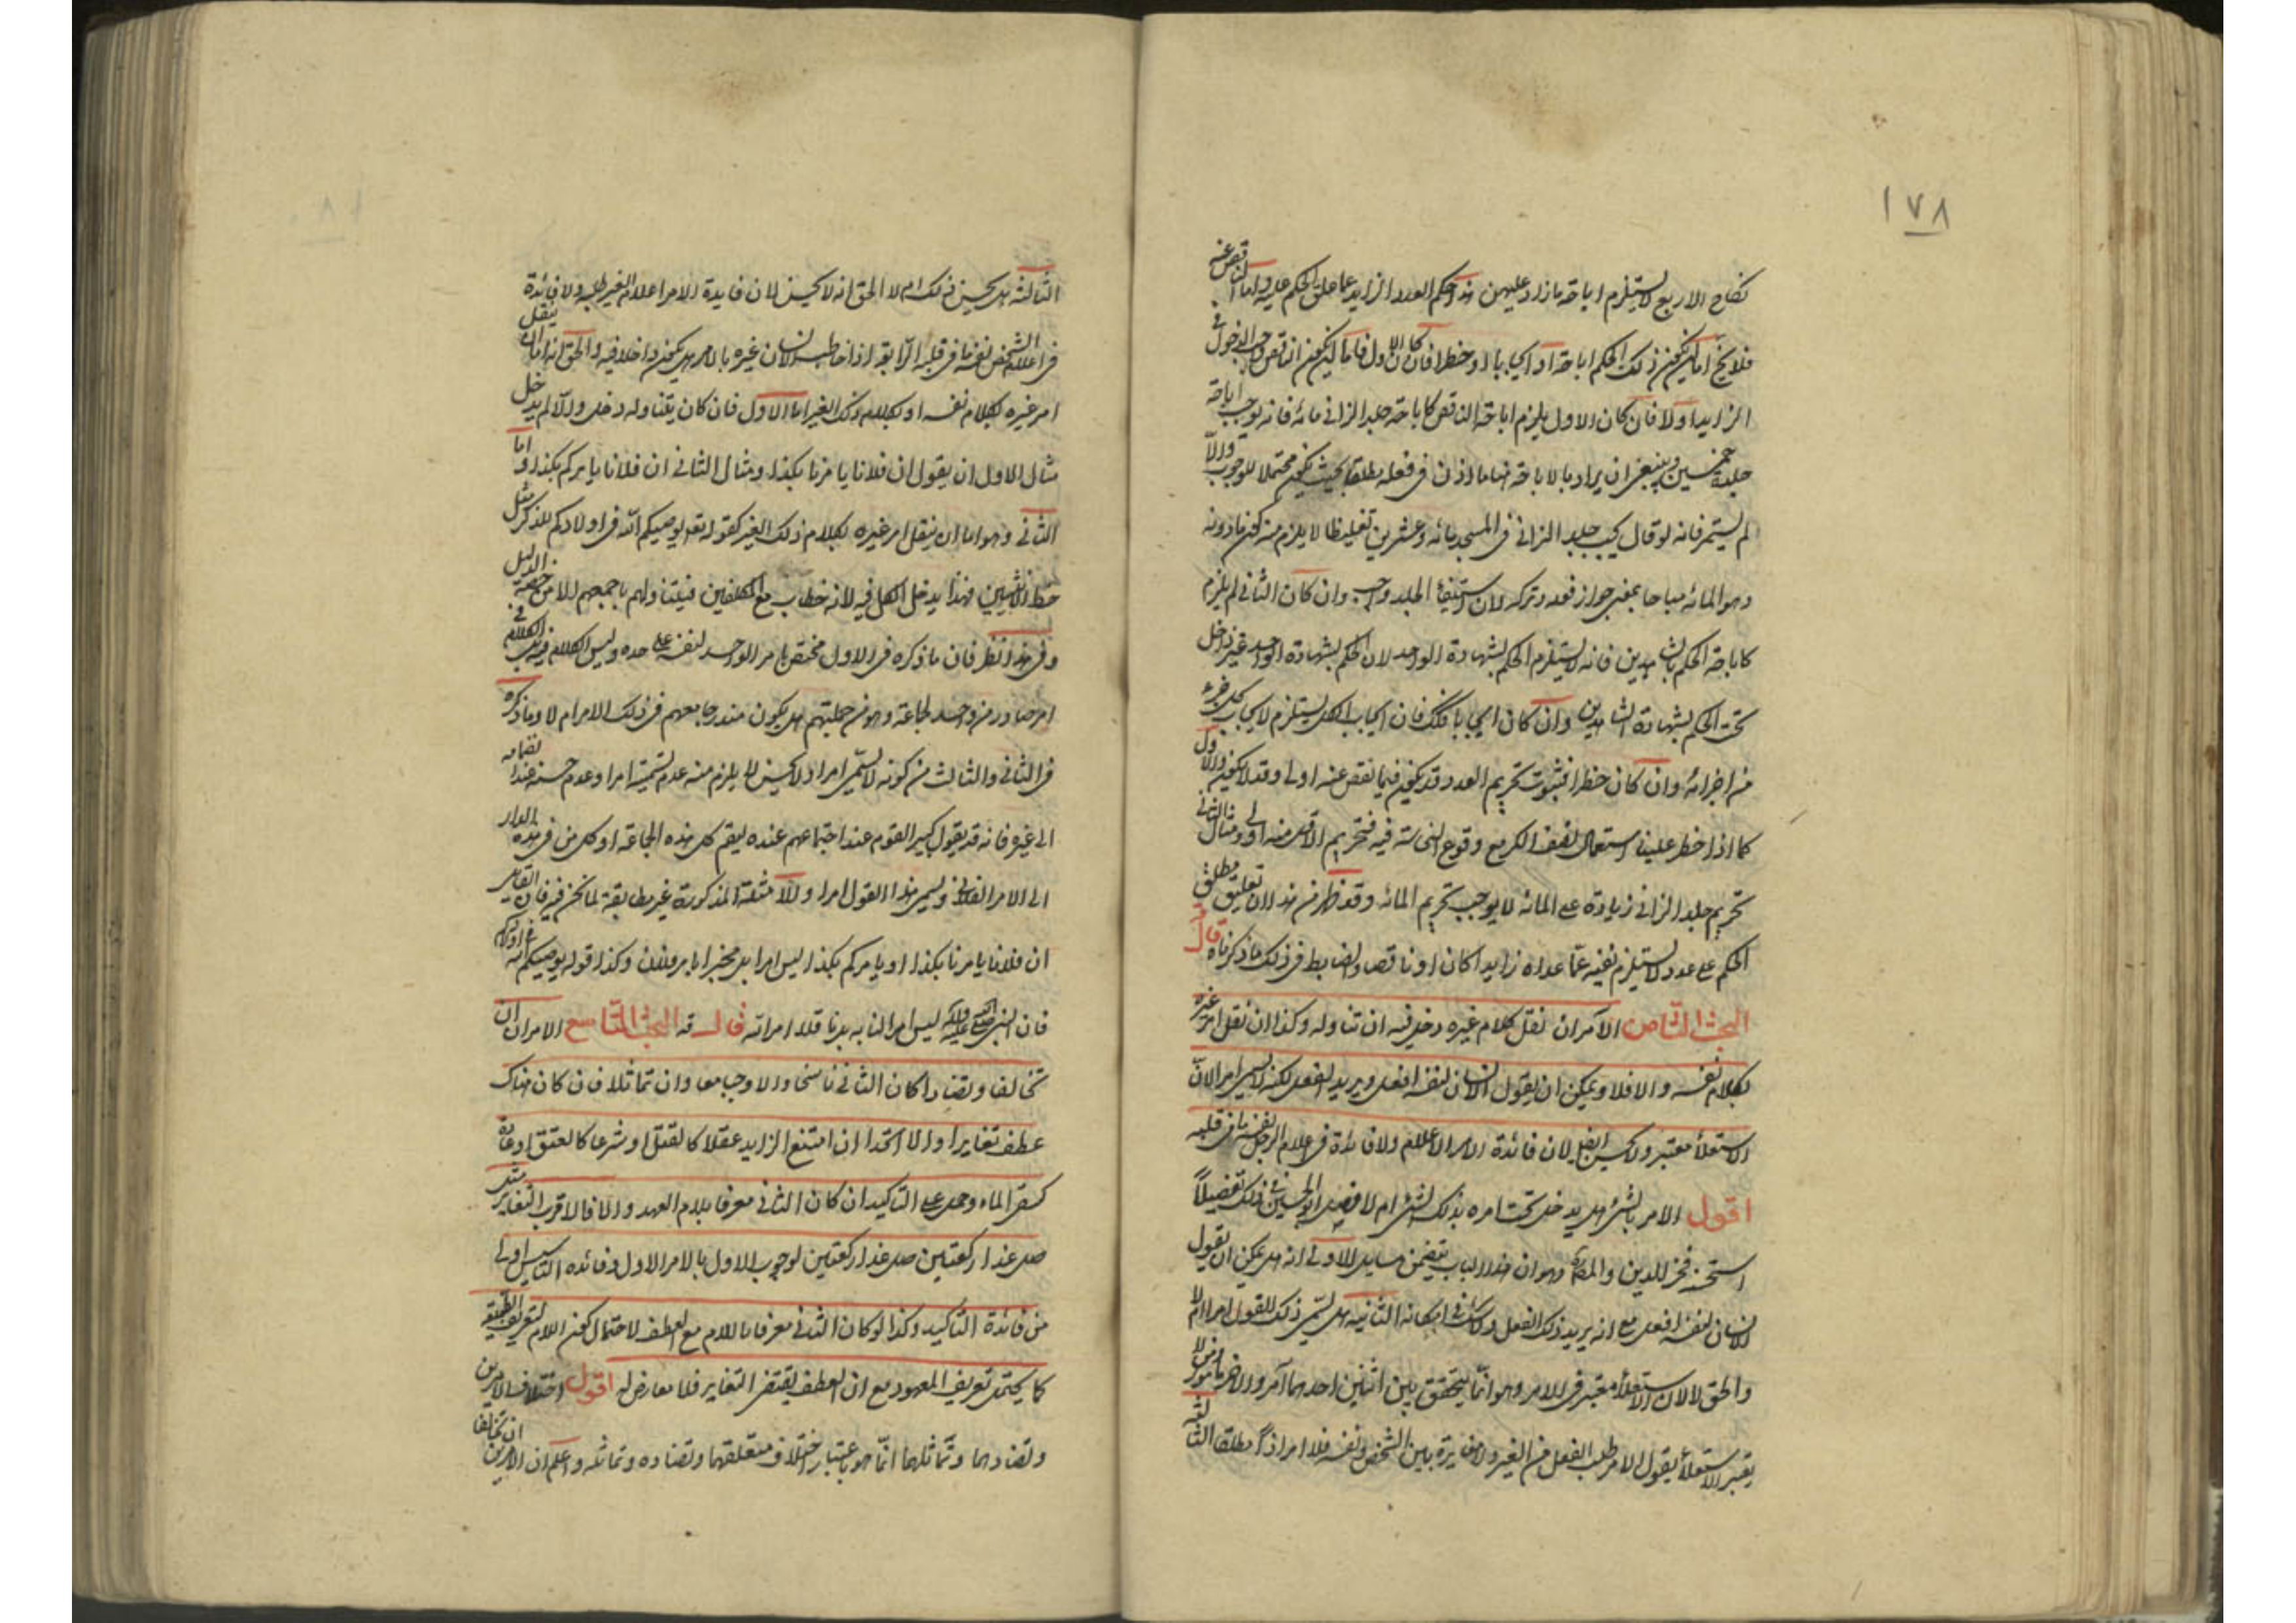 ١٧٨
نكاح الاربع لا يستلزم اباحة ما زاد عليهن هذا حكم العدد الزايد عما علق الحكم عليه واما الناقص عنه
فلا يخ اما ان يكون ذلك الحكم اباحة او ايجابا او حظرا فان كان الاول فاما ان يكون الناقص واجب الدخول في
الزايد او لا فان كان الاول يلزم اباحة الناقص كاباحة جلد الزاني مائة فانه يوجب اباحة
جلد خمسين وينبغي ان يراد بالاباحة هنا ما اذن في فعله مطلقا بحيث يكون محتملا للوجوب والا
لم يستمر فانه لو قال يجب جلد الزاني في المسجد مائة وعشرين تغليظا لا يلزم منه كون ما دونه
وهو المائة مباحا بمعنى جواز فعله وتركه لان استيفاء الجلد واجب وان كان الثاني لم يلزم
كاباحة الحكم بالشاهدين فانه لا يستلزم الحكم بشهادة الواحد لان الحكم بشهادة الواحد غير داخل
تحت الحكم بشهادة الشاهدين وان كان ايجابا فكك فان ايجاب الكل يستلزم لايجاب كل جزء
من اجزائه وان كان حظرا فثبوت تحريم العدد قد يكون فيما نقص عنه اولى وقد لا يكون والاول
كما اذا حظر علينا استعمال نصف الكر مع وقوع النجاسة فيه فتحريم الاقل منه اولى ومثال الثاني
تحريم جلد الزاني زيادة على المائة لا يوجب تحريم المائة وقد ظهر من هذا ان تعليق مطلق
الحكم على عدد لا يستلزم نفيه عما عداه زايدا كان او ناقصا والضابط في ذلك ما ذكرناه قال
البحث الثامن الآمر ان نقل كلام غيره دخل فيه ان تناوله وكذا ان نقل امر غيره
بكلام نفسه والا فلا ويمكن ان يقول الانسان لنفسه افعل ويريد الفعل لكنه لا يسمى امرا لان
الاستعلاء معتبر ولا يحسن ايضا لان فائدة الامر الاعلام ولا فائدة في اعلام الرجل نفسه ما في قلبه
اقول الامر بالشيء هل يدخل تحت امره بذلك الشيء ام لا فصل ابو الحسين في ذلك تفصيلاً
استحسنه فخر الدين والمص وهو ان هذا الباب يتضمن مسايل الاولى انه هل يمكن ان يقول
الانسان لنفسه افعل مع انه يريد ذلك الفعل ولا شك في امكانه الثانية هل يسمى ذلك القول امرا ام لا
والحق لا لان الاستعلاء معتبر في الامر وهو انما يتحقق بين اثنين احدهما آمر والاخر مامور ومن لا
يعتبر الاستعلاء يقول الامر طلب الفعل من الغير ولا مغايرة بين الشخص ونفسه فلا امر اذاً مطلقا
الثالثة هل يحسن ذلك ام لا الحق انه لا يحسن لان فايدة الامر اعلام الغير طلبه ولا فائدة
في اعلام الشخص نفسه ما في قلبه الرابعة اذا خاطب الانسان غيره بالامر هل يكون داخلا فيه والحق انه اما ان ينقل
امر غيره بكلام نفسه او بكلام ذلك الغير اما الاول فان كان يتناوله دخل والا لم يدخل
مثال الاول ان يقول ان فلانا يامرنا بكذا ومثال الثاني ان فلانا يامركم بكذا واما
الثاني وهو اما ان ينقل امر غيره بكلام ذلك الغير كقوله تعالى يوصيكم الله في اولادكم للذكر مثل
حظ الانثيين فهذا يدخل الكل فيه لانه خطاب مع المكلفين فيتناولهم باجمعهم الا من خصه الدليل
وفي هذا نظر فان ما ذكره في الاول مختص بامر الواحد لنفسه على حده وليس الكلام فيه بل الكلام في
امر صادر من واحد لجماعة وهو من جملتهم هل يكون مندرجا معهم في ذلك الامر ام لا وما ذكره
في الثاني والثالث من كونه لا يسمى امرا ولا يحسن لا يلزم منه عدم تسميته امرا وعدم حسنه عند انضمامه
الى غيره فانه قد يقول كبير القوم عند اجتماعهم عنده ليقم كل هذه الجماعة او كل من في هذه الدار
الى الامر الفلاني ويسمى هذا القول امرا والامثلة المذكورة غير مطابقة لما نحن فيه فان القايل
ان فلانا يامرنا بكذا او يامركم بكذا ليس امرا بل مخبرا بامر فلان وكذا قوله يوصيكم الله في اولادكم
فان النبي صلى الله عليه واله ليس امرا لنا به بل ناقلا امر الله قال البحث التاسع الامران ان
تخالفا وتضادا كان الثاني ناسخا والا وجبا معا وان تماثلا فان كان هناك
عطف تغايرا والا اتحدا ان امتنع الزايد عقلا كالقتل او شرعا كالعتق او عادة
كسقي الماء وحمل على التاكيد ان كان الثاني معرفا بلام العهد والا فالاقرب التغاير مثل
صل غدا ركعتين صل غدا ركعتين لوجوب الاول بالامر الاول وفائدة التاسيس اولى
من فائدة التاكيد وكذا لو كان الثاني معرفا باللام مع العطف لاحتمال كون اللام لتعريف الطبيعة
كما يحتمل تعريف المعهود مع ان العطف يقتضي التغاير فلا معارض له اقول اختلاف الامرين
وتضادهما وتماثلهما انما هو باعتبار اختلاف متعلقهما وتضاده وتماثله واعلم ان الامرين ان تخالفا